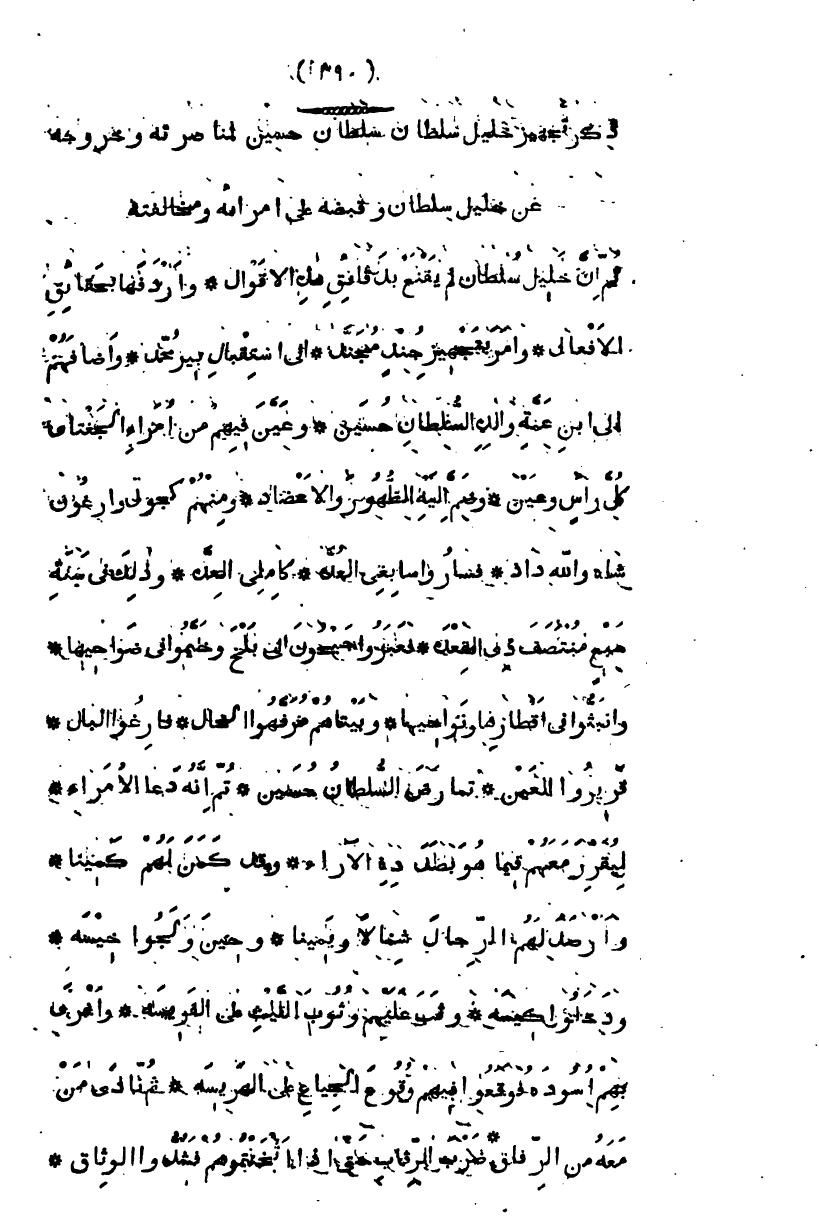 (٣٩٠)
ذكر تجهيز خليل سلطان سلطان حسين لمناصرته وخروجه
عن خليل سلطان وقبضه على امرائه ومخالفته
ثُمَّ اِنَّ خَلِيل سُلْطان لم يَقْنَعْ بِذِهِ الاقوال * وَاَرْدَفَها بِحَقائِقِ
الاَفْعال * وامَرَ بِتَجْهيزِ جُنْدٍ مُجَنَّد * الى اسْتِقْبالِ بير مُحَمَّد * وَاَضافَهُمْ
الى ابنِ عَمَّةِ والدِهِ السُّلطانِ حُسَين * وعَيَّنَ فيهِم من اُمَراءِ الجَغتاى
كُلَّ راسٍ وعَيْن * وضَمَّ اِلَيْهِ الظُّهورَ والاعْضاد * ومِنْهُمْ كجوك وارغُون
شاه والله داد * فسارُوا سابِغِى العُدَّه * كامِلِى العِدَّه * وذلِكَ فى سَنَةِ
سَبْعٍ مُنْتَصَفَ ذى القِعْدَه * فعَبَرُوا جَيْحُونَ الى بَلْخَ وخَيَّمُوا فى ضَواحِيها *
وانبَثُّوا فى اَقْطارِها ونَواحِيها * وبَيْنَا هُمْ مُرَفَّهُوا الحال * فارِغُوا البال *
قَرِيرُوا العَيْن * تمارَضَ السُّلطانُ حُسَين * ثُمَّ اِنَّهُ دَعا الاُمَراء *
لِيُقَرِّرَ مَعَهُمْ فيما هُوَ بِصَدَدِهِ الآراء * وقد كَمَّنَ لَهُمْ كَمِينا *
وَاَرْصَدَ لَهُم الرِّجالَ شِمالًا ويَمِينا * وحِينَ وَلَجُوا خِيسَه *
ودَخَلُوا كِيسَه * وثَبَ عَلَيْهِم وُثُوبَ اللَّيْثِ على الفَرِيسَه * واغْرَى
بِهِمْ اُسُودَه فوقَعُوا فيهِمْ وُقُوعَ الجِياعِ على الهَرِيسَه * ثُمَّ نادَى مَنْ
مَعَهُ مِن الرِّفاق * ضَرْبَ الرِّقابِ حَتَّى اذا اَثْخَنْتُموهُم فشُدُّوا الوثاق *